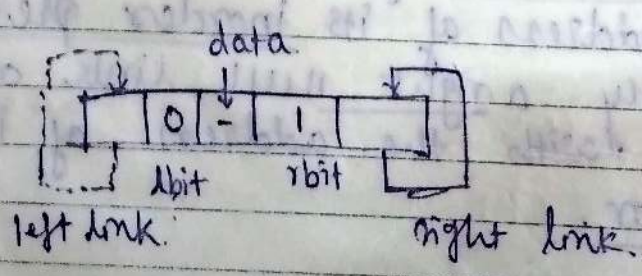 data
0 - 1
lbit rbit
left link. right link.